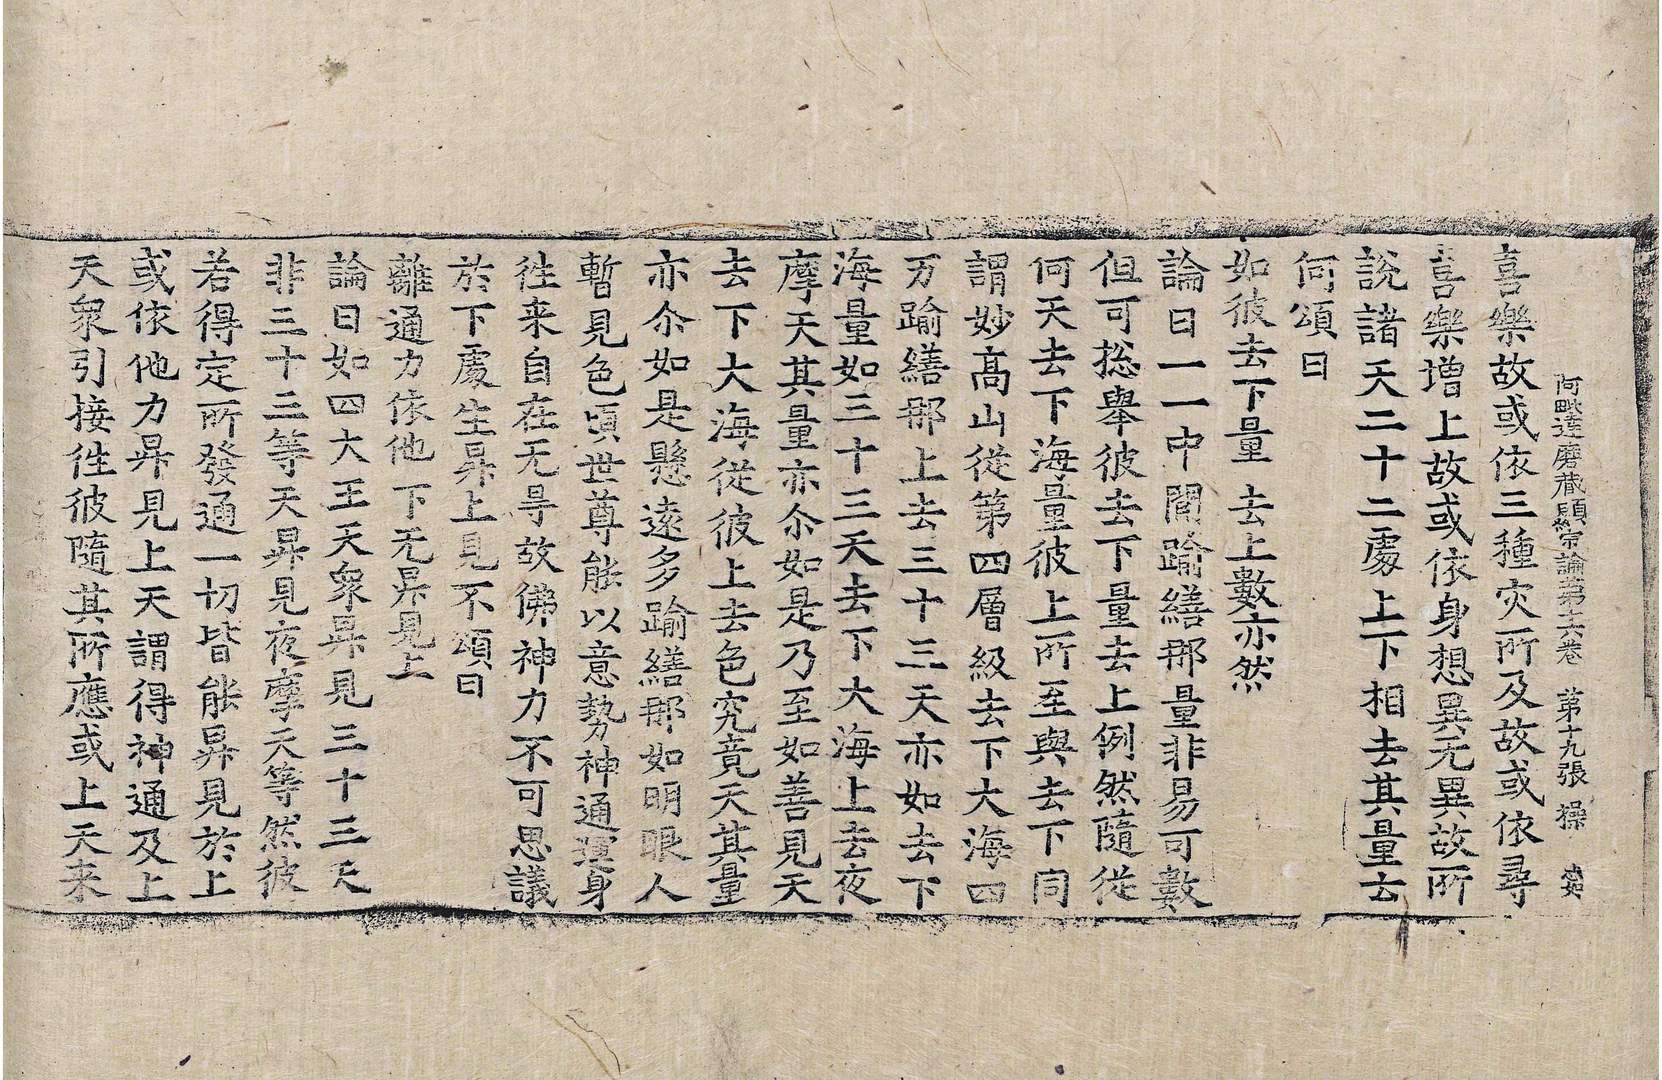 阿毗達磨藏顯宗論第十六卷　第十九張　操
喜樂故或依三種灾所及故或依尋
喜樂增上故或依身想異无異故所
說諸天二十二處上下相去其量云
何頌曰
如彼去下量　去上數亦然
論曰一一中閒踰繕那量非易可數
但可揔舉彼去下量去上例然隨從
何天去下海量彼上所至與去下同
謂妙高山從第四層級去下大海四
万踰繕那上去三十三天亦如去下
海量如三十三天去下大海上去夜
摩天其量亦尒如是乃至如善見天
去下大海從彼上去色究竟天其量
亦尒如是懸遠多踰繕那如明眼人
暫見色頃世尊能以意勢神通運身
徃来自在无㝵故佛神力不可思議
於下處生昇上見不頌曰
離通力依他　下无昇見上
論曰如四大王天衆昇見三十三天
非三十三等天昇見夜摩天等然彼
若得定所發通一切皆能昇見於上
或依他力昇見上天謂得神通及上
天衆引接徃彼隨其所應或上天来